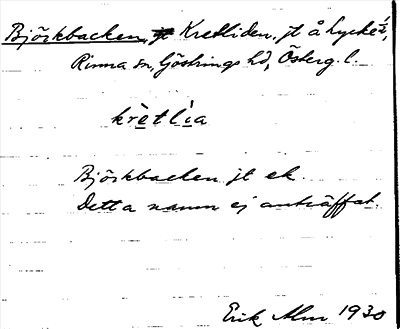 Björkbacken, Kretliden, jt å Lycke 1/2,
Rinna sn, Göstrings hd, Österg. l.
krètlìa
Björkbacken jt ek.
Detta namn ej anträffat.
Erik Alm 1930